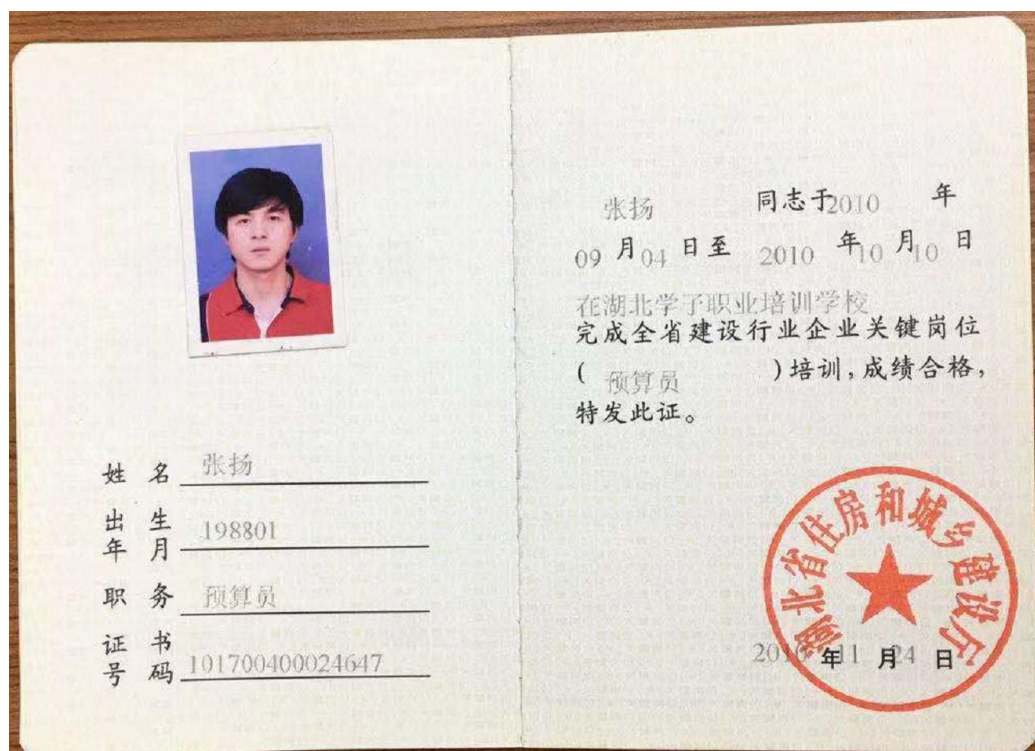 姓 名 张扬
出 生
年 月 198801
职 务 预算员
证 书
号 码 101700400024647
张扬 同志于2010 年
09 月 04 日至 2010 年 10 月 10 日
在湖北学子职业培训学校
完成全省建设行业企业关键岗位
( 预算员 )培训,成绩合格,
特发此证。
湖北省住房和城乡建设厅
2010 年 11 月 24 日